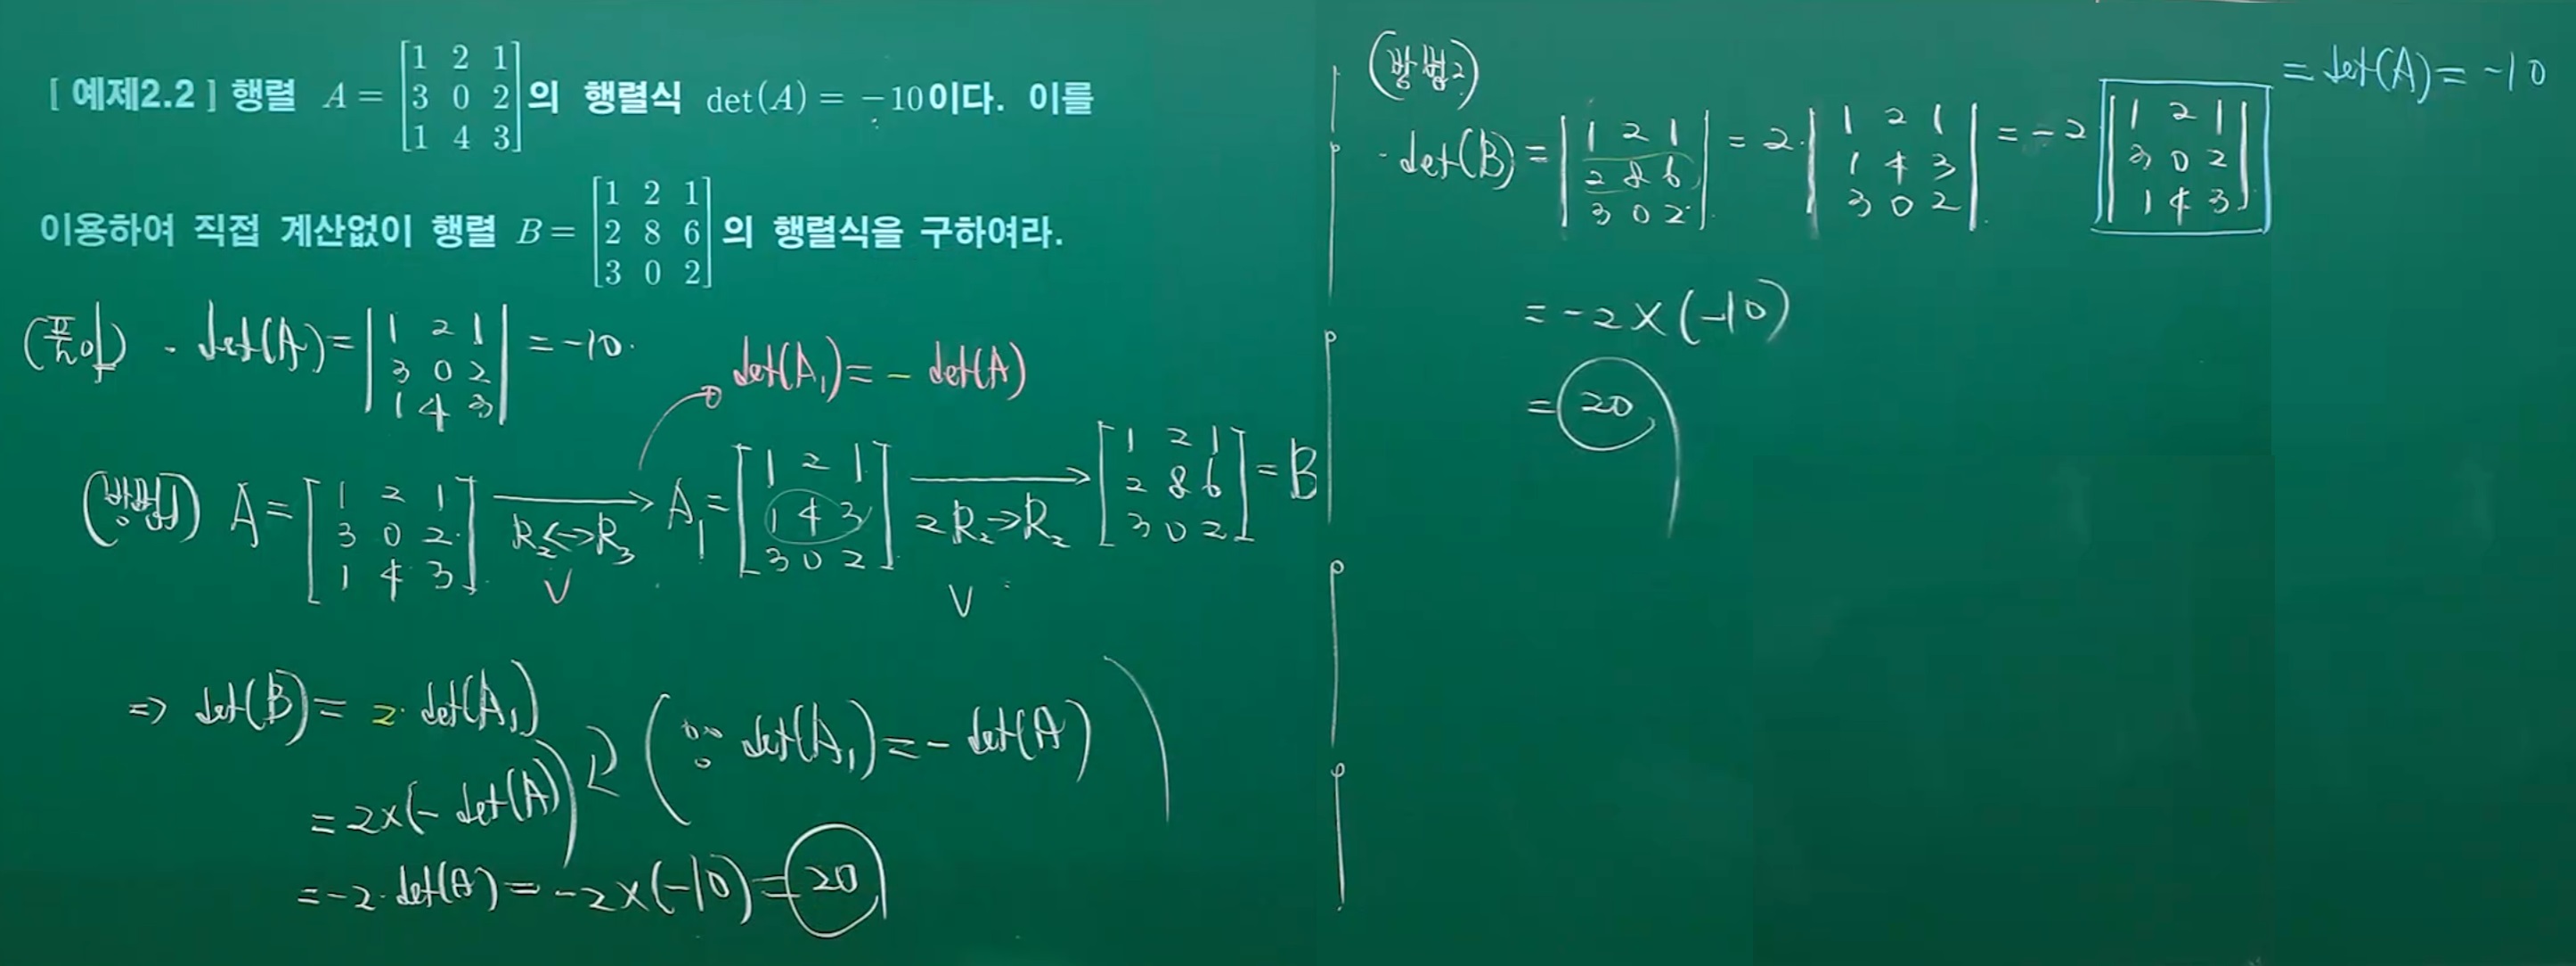 [ 예제2.2 ] 행렬 A = [1 2 1; 3 0 2; 1 4 3]의 행렬식 det(A) = -10이다. 이를
이용하여 직접 계산없이 행렬 B = [1 2 1; 2 8 6; 3 0 2]의 행렬식을 구하여라.
(풀이) · det(A) = |1 2 1; 3 0 2; 1 4 3| = -10.
det(A₁) = - det(A)
(방법1) A = [1 2 1; 3 0 2; 1 4 3] → R₂↔R₃ A₁ = [1 2 1; 1 4 3; 3 0 2] → 2R₂→R₂ [1 2 1; 2 8 6; 3 0 2] = B
⇒ det(B) = 2·det(A₁)
(∵ det(A₁) = - det(A))
= 2×(- det(A))
= -2·det(A) = -2×(-10) = 20
(방법2)
· det(B) = |1 2 1; 2 8 6; 3 0 2| = 2·|1 2 1; 1 4 3; 3 0 2| = -2 |1 2 1; 3 0 2; 1 4 3|
= det(A) = -10
= -2×(-10)
= 20